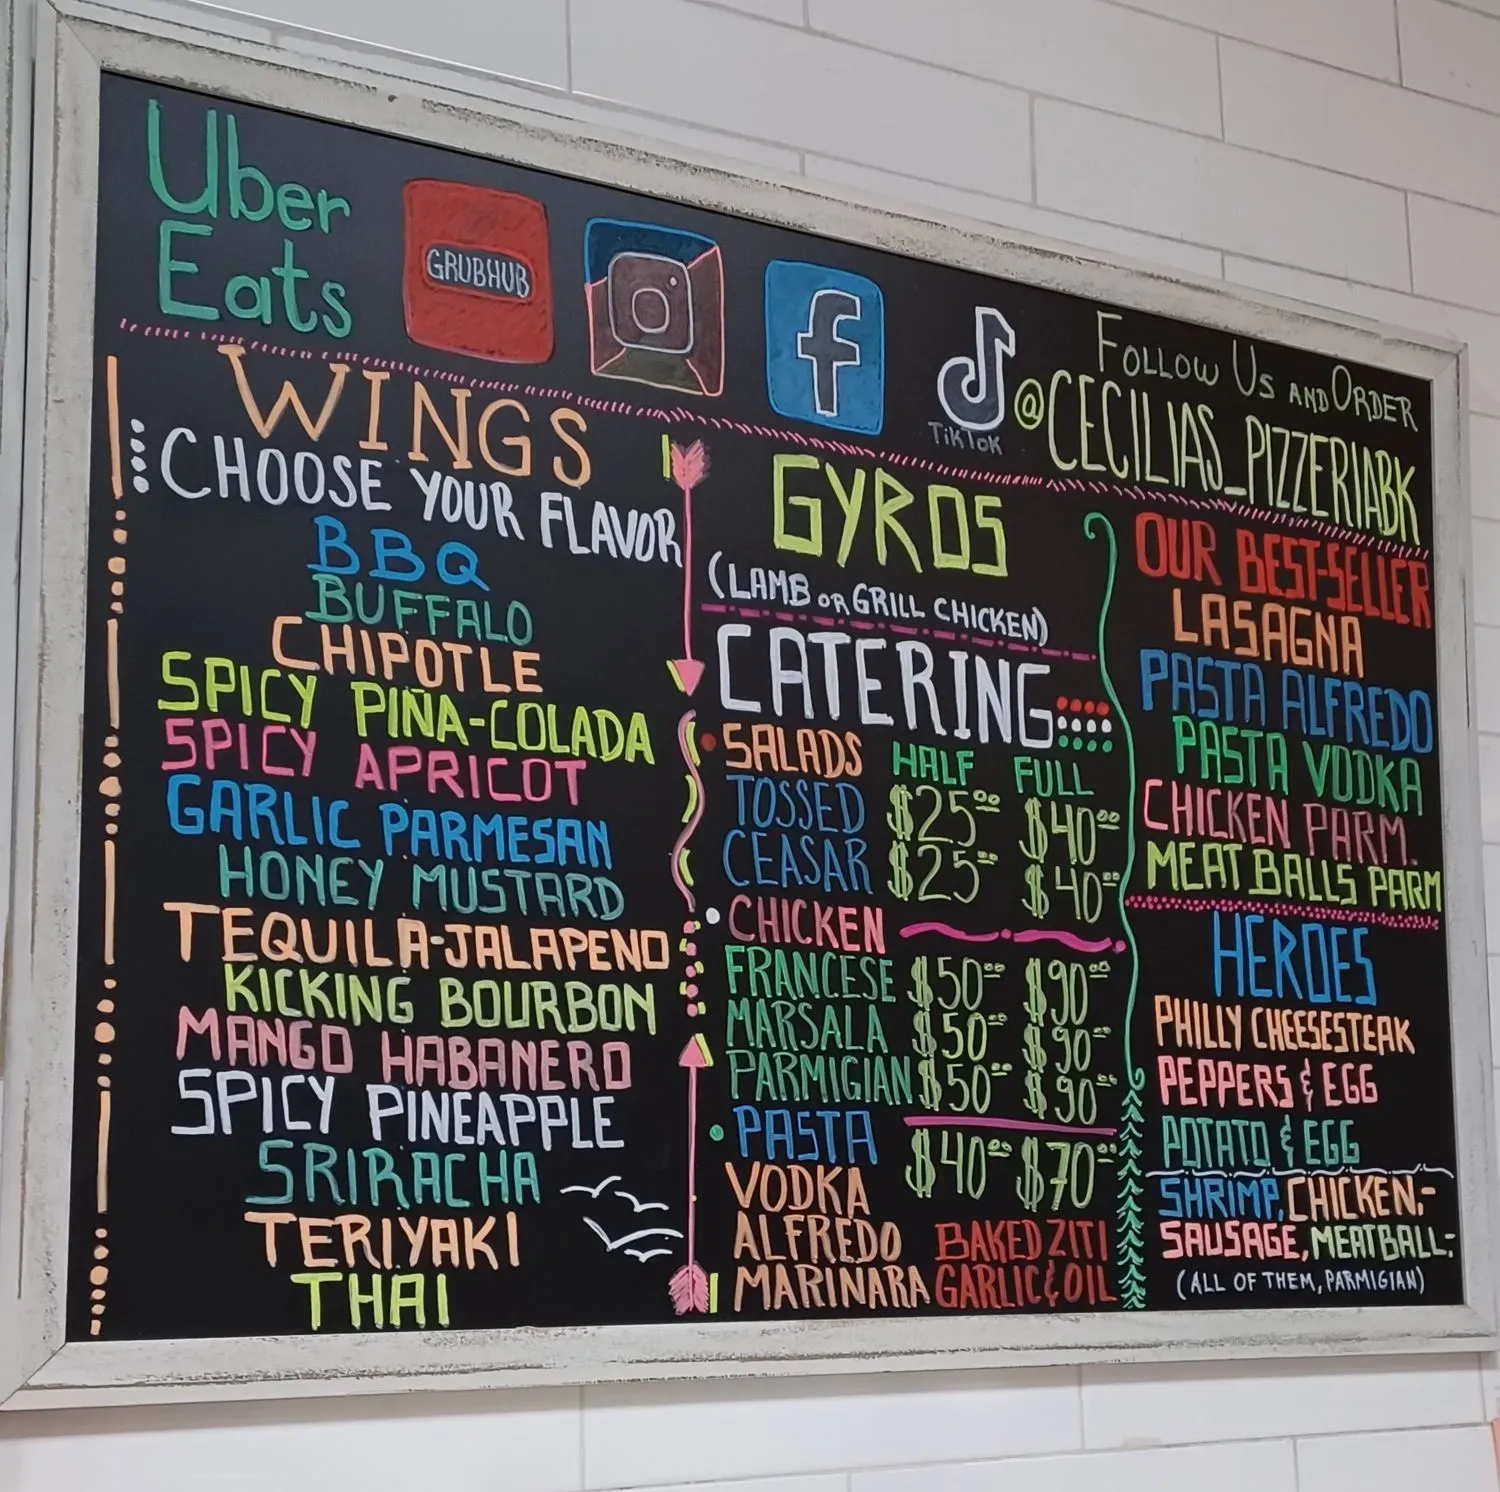 Uber
Eats
GRUBHUB
TikTok
Follow Us and Order
@CECILIAS_PIZZERIABK
WINGS
CHOOSE YOUR FLAVOR
BBQ
BUFFALO
CHIPOTLE
SPICY PIÑA-COLADA
SPICY APRICOT
GARLIC PARMESAN
HONEY MUSTARD
TEQUILA-JALAPENO
KICKING BOURBON
MANGO HABANERO
SPICY PINEAPPLE
SRIRACHA
TERIYAKI
THAI
GYROS
(LAMB OR GRILL CHICKEN)
CATERING
SALADS HALF FULL
TOSSED $25.00 $40.00
CEASAR $25.00 $40.00
CHICKEN
FRANCESE $50.00 $90.00
MARSALA $50.00 $90.00
PARMIGIAN $50.00 $90.00
PASTA $40.00 $70.00
VODKA
ALFREDO BAKED ZITI
MARINARA GARLIC & OIL
OUR BEST-SELLER
LASAGNA
PASTA ALFREDO
PASTA VODKA
CHICKEN PARM.
MEAT BALLS PARM
HEROES
PHILLY CHEESESTEAK
PEPPERS & EGG
POTATO & EGG
SHRIMP, CHICKEN,-
SAUSAGE, MEATBALL-
(ALL OF THEM, PARMIGIAN)